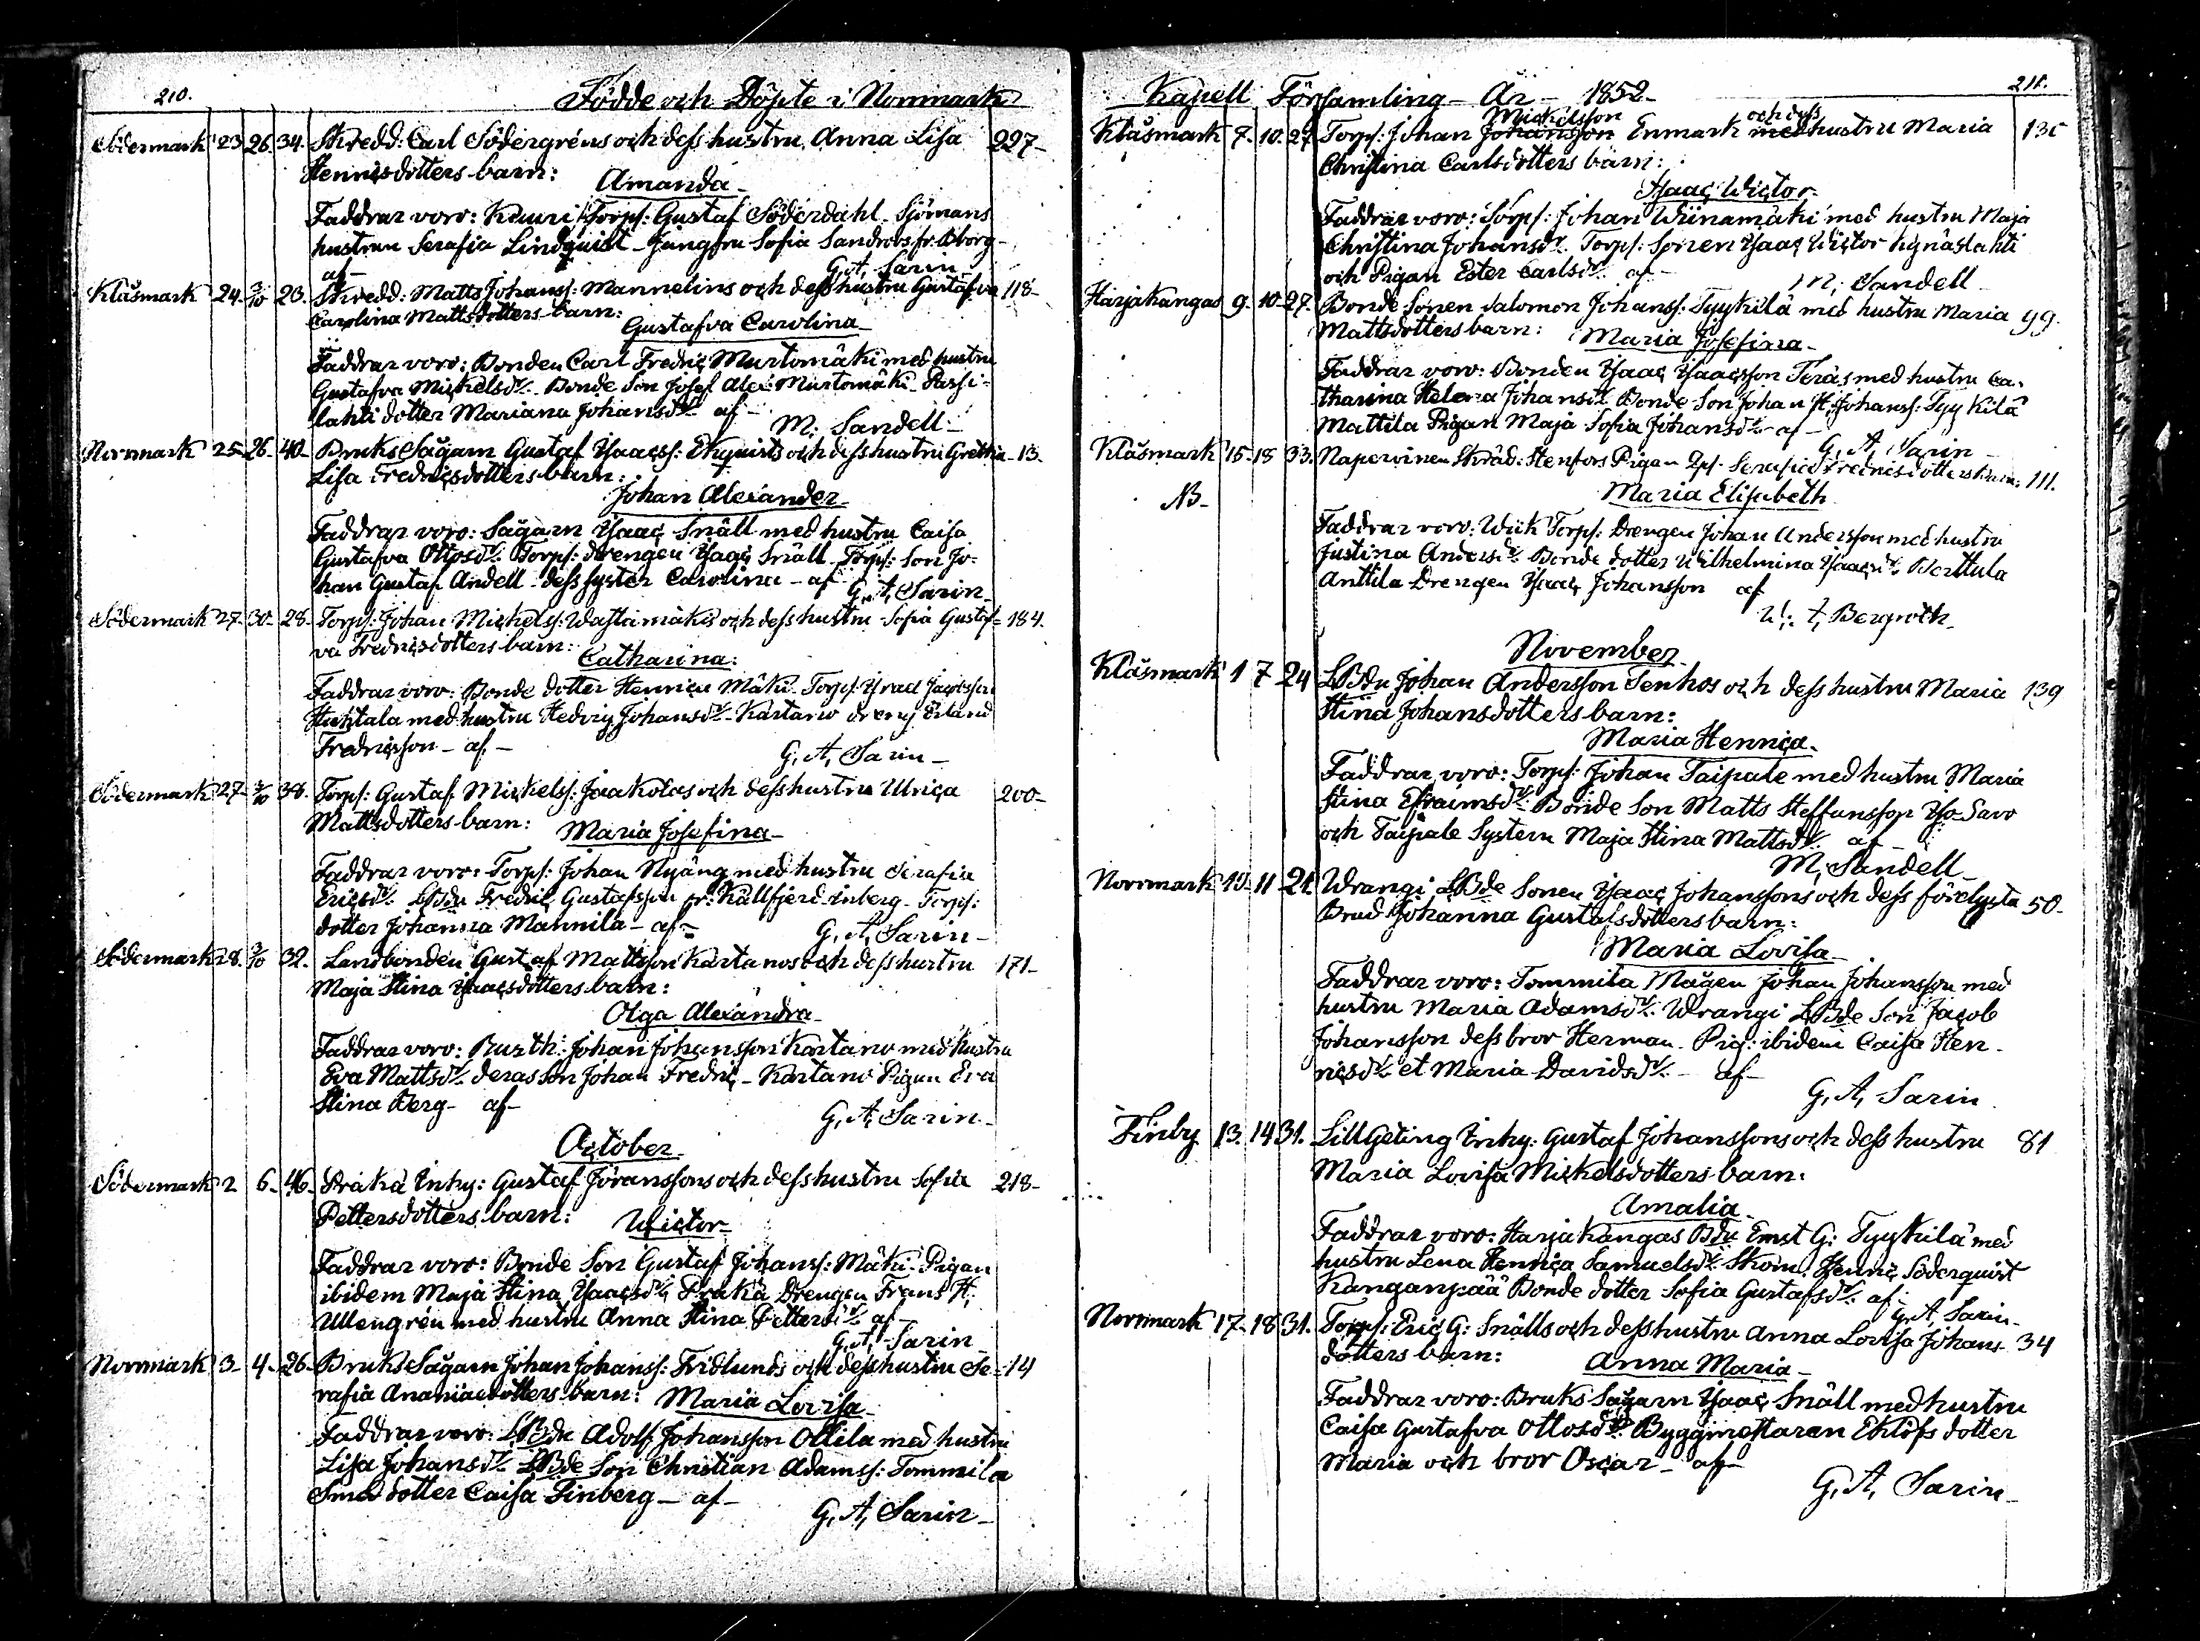 210.
Födde och Döpte i Norrmark
Södermark 23 26. 34. Skredd: Carl Södergréns och dess hustru Anna Lisa 227-
Henricsdotters barn:
Amanda
Faddrar voro: Torps: Gustaf Söderdahl Sjömans
hustrun Serafia Lindquist Jungfru Sofia
af G. A. Sarin
Klåsmark 24. 3/10 23. Skredd: Matts Johanss: Mannelins och dess hustru Gustafva 118-
Carolina Mattsdotters barn:
Gustafva Carolina
Faddrar voro: Bonden Carl Fredric Murtomäki med hustru
Gustafva Mickelsdr. Bonde Son Josef Alex: Murtomäki Passi-
lahti dotter Mariana Johansdr. af
M. Sandell
Norrmark 25 26. 40. Bruks Sågarn Gustaf Isaacss: Ekqvists och dess hustru Gretha 13.
Lisa Fredricsdotters barn:
Johan Alexander
Faddrar voro: Sågarn Isaac Snäll med hustru Caisa
Gustafva Ottosdr. Torps: drengen Isaac Snäll Torps: Son Jo-
han Gustaf Andell dess syster Carolina af G. A. Sarin
Södermark 27. 30. 28. Torps: Johan Mickelss: Wastamäkis och dess hustru Sofia Gustaf- 184.
va Fredricsdotters barn:
Catharina:
Faddrar voro: Bonde dotter Henrica Mäki Torps: Israel Jacobsson
med hustru Hedvig Johansdr. Kartano dreng Erland
Fredricsson af
G. A. Sarin
Södermark 27. 3/10 38. Torps: Gustaf Mickelss: Jaakolas och dess hustru Ulrica 200-
Mattsdotters barn:
Maria Josefina
Faddrar voro: Torps: Johan Nyäng med hustru Serafia
Ericsdr. LBdn Fredric Gustafsson fr: Källfjerd Inberg Torps:
dotter Johanna Mannila af
G. A. Sarin
Södermark 28. 3/10 32. Lansbonden Gustaf Mattsson Kartanos och dess hustru 171-
Maja Stina Isaacsdotters barn:
Olga Alexandra
Faddrar voro: Rusth: Johan Johansson Kartano med hustru
Eva Mattsdr. deras son Johan Fredric Kartano Pigan Eva
Stina Berg af
G. A. Sarin
October
Södermark 2 6. 46. Pråkä Inhy: Gustaf Jöranssons och dess hustru Sofia 218-
Pettersdotters barn:
Wictor
Faddrar voro: Bonde Son Gustaf Johanss: Mäki Pigan
ibidem Maja Stina Isaacsdr. Pråkä Drengen Frans H.
Ullengrén med hustru Anna Stina Pettersdr. af
G. A. Sarin
Norrmark 3 4. 26. Bruks Sågarn Johan Johanss: Fridlunds och dess hustru Se- 14
rafia Ananiaedotters barn:
Maria Lovisa
Faddrar voro: LBdn Adolf Johansson Ollila med hustru
Lisa Johansdr. LBde Son Christian Adamss: Tommila
Smed dotter Caisa Finberg af
G. A. Sarin
211.
Kapell Församling År 1852
Klåsmark 7. 10. 27. Torps: Johan Johansson Mickelsson Enmark med och dess hustru Maria
Christina Carlsdotters barn:
Isaac Wictor
Faddrar voro: Torps: Johan Wiinamäki med hustru Maja
Christina Johansdr. Torps: Sonen Isaac Wictor
och Pigan Ester Carlsdr. af
M. Sandell
Harjakangas 9. 10. 27. Bonde Sonen Salomon Johanss: Tyykilä med hustru Maria 99.
Mattsdotters barn:
Maria Josefina
Faddrar voro: Bonden Isaac Isaacsson Teräs med hustru Ca-
tharina Helena Johansdr. Bonde Son Johan H. Johanss: Tyykilä
Mattila Pigan Maja Sofia Johansdr. af
G. A. Sarin
Klåsmark 15 18 33. Skräd: Stenfors Pigan Serafia Fredricsdotters barn: 111.
NB
Maria Elisabeth
Faddrar voro: Wiik Torps: Drengen Johan Andersson med hustru
Justina Andersdr. Bonde dotter Wilhelmina Isaacsdr. Berttula
Anttila Drengen Isaac Johansson af
Bergroth
November
Klåsmark 1 7 24 LBdn Johan Andersson Tenhos och dess hustru Maria 139
Stina Johansdotters barn:
Maria Henrica
Faddrar voro: Torps: Johan Taipale med hustru Maria
Stina Efraimsdr. Bonde Son Matts Steffansson Iso Savo
och Taipale Systern Maja Stina Mattsdr. af
M. Sandell
Norrmark 10 11 21. Wrangi LBde Sonen Isaac Johanssons och dess förelysta 50-
Brud Johanna Gustafsdotters barn:
Maria Lovisa
Faddrar voro: Tommila Mågen Johan Johansson med
hustru Maria Adamsdr. Wrangi LBde Son Jacob
Johansson dess bror Herman Pig: ibidem Caisa Hen-
ricsdr. et Maria Davidsdr. af
G. A. Sarin
Finby 13. 14 31. Lill Geting Inhy: Gustaf Johanssons och dess hustru 81
Maria Lovisa Mickelsdotters barn:
Amalia
Faddrar voro: Harjakangas Bdn Ernst G: Tyykilä med
hustru Lena Henrica Samuelsdr. Skom: Henric Söderquist
Kanganpää Bonde dotter Sofia Gustafsdr. af
G. A. Sarin
Norrmark 17. 18 31. Torps: Eric G: Snälls och dess hustru Anna Lovisa Johans- 34
dotters barn:
Anna Maria
Faddrar voro: Bruks Sågarn Isaac Snäll med hustru
Caisa Gustafva Ottosdr. Byggmettaren Eklöfs dotter
Maria och bror Oscar af
G. A. Sarin